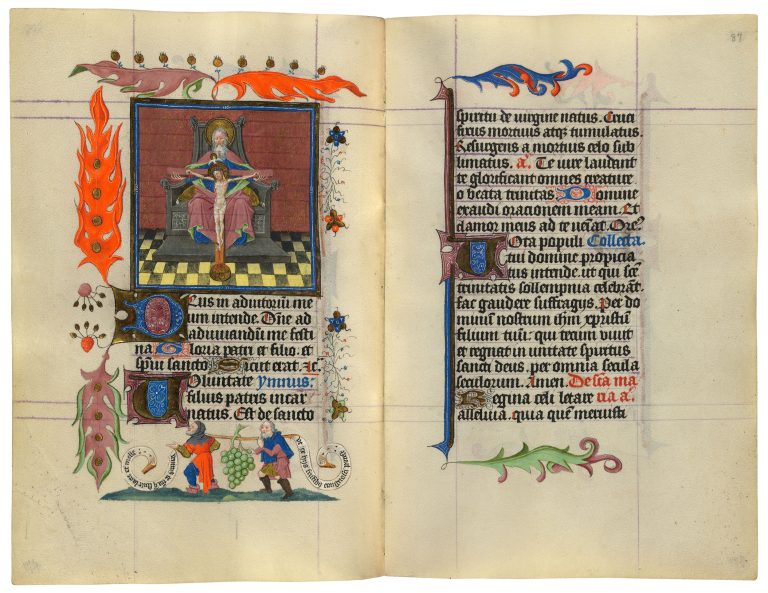 Deus in adiutoriū me
um intende. Dn̄e ad
adiuuandū me festi
na Gloria patri et filio. et
sp̄ui sancto Sicut erat. 
Uoluntate ymnus.
filius patris incar
natus. Est de sancto
87
spiritu de uirgine natus. Cruci
fixus mortuus atqꝫ tumulatus.
Resurgens a mortuis celo sub
limatus. a. Te iure laudant
te glorificant omnes creature
o beata trinitas Domine
exaudi orationem meam. Et
clamor meus ad te ueniat. Orem̄.
Uota populi Collecta.
tui domine propicia
tus intende. ut qui sc̄e
trinitatis sollempnia celebrāt
fac gaudere suffragiis. Per do
minū nostrum ihm̄ xpristū
filium tuū. qui tecum uiuit
et regnat in unitate spiritus
sancti deus. per omnia secula
seculorum. Amen. De scā ma
Regina celi letare ria a.
alleluia. quia quē meruisti